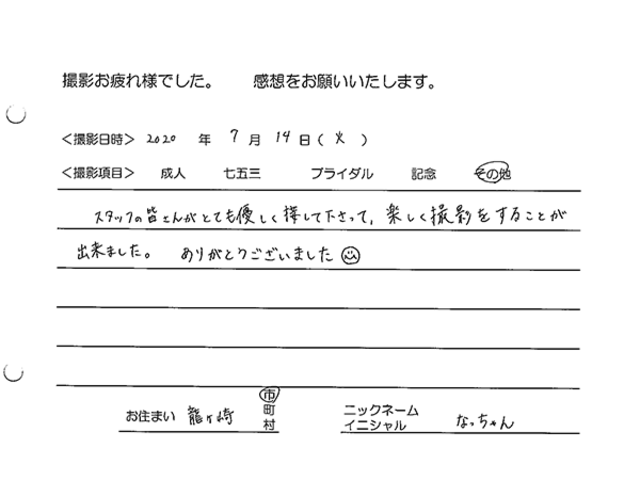 撮影お疲れ様でした。 感想をお願いいたします。
＜撮影日時＞ 2020 年 7 月 14 日 ( 火 )
＜撮影項目＞ 成人 七五三 ブライダル 記念 その他
スタッフの皆さんがとても優しく接して下さって、楽しく撮影をすることが
出来ました。 ありがとうございました
お住まい 龍ヶ崎 市
町
村
ニックネーム
イニシャル なっちゃん